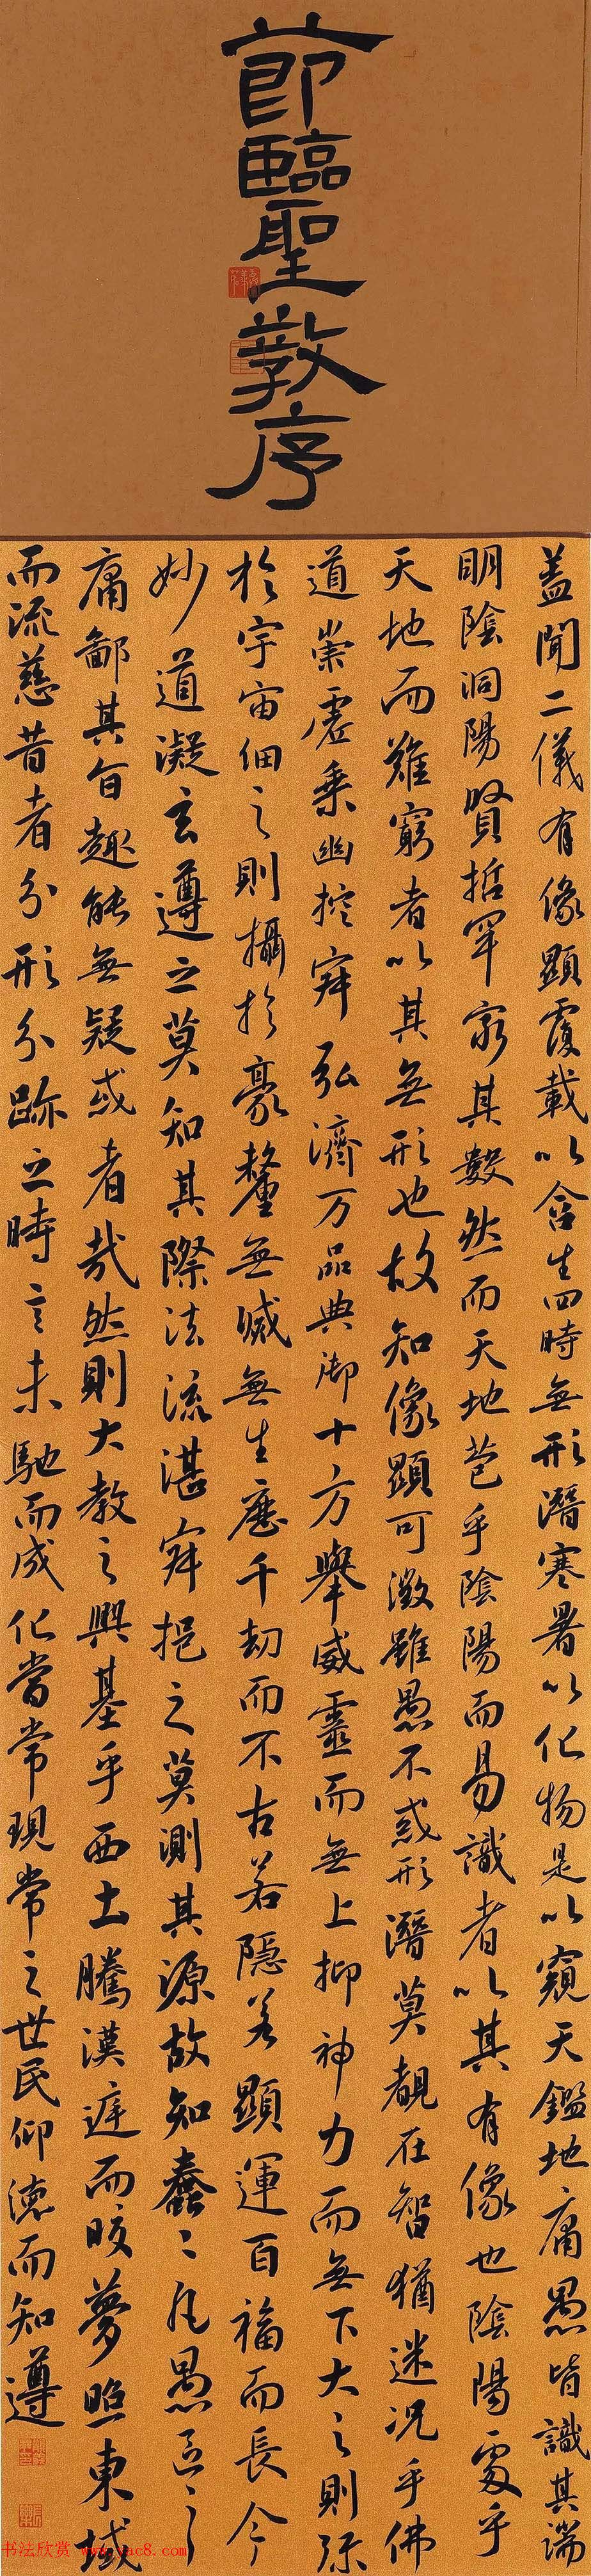 莭臨聖教序
蓋聞二儀有像顯覆載以含生四時無形潛寒暑以化物是以窺天鑑地庸愚皆識其端
明陰洞陽賢哲罕窮其數然而天地苞乎陰陽而易識者以其有像也陰陽處乎
天地而難窮者以其無形也故知像顯可徵雖愚不惑形潛莫覩在智猶迷況乎佛
道崇虛乘幽控寂弘濟万品典御十方舉威靈而無上抑神力而無下大之則弥
於宇宙細之則攝於豪釐無滅無生歷千劫而不古若隱若顯運百福而長今
妙道凝玄遵之莫知其際法流湛寂挹之莫測其源故知蠢〻凡愚區〻
庸鄙其旨趣能無疑或者哉然則大教之興基乎西土騰漢庭而皎夢照東域
而流慈昔者分形分跡之時言未馳而成化當常現常之世民仰德而知遵
书法欣赏 www.yac8.com